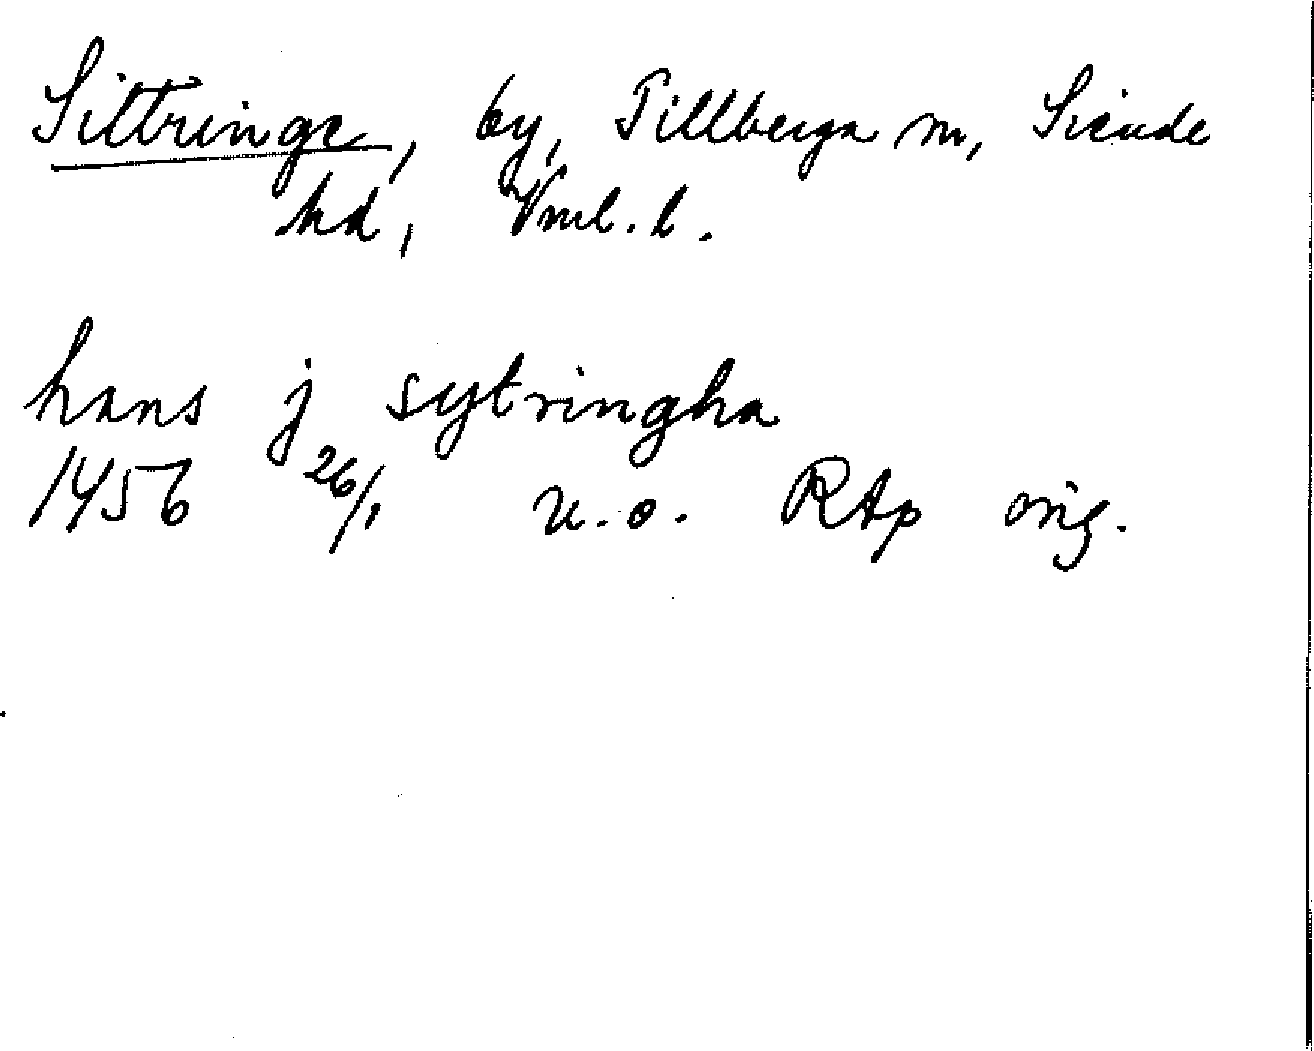 Sittringe, by, Tillberga sn, Siende
hd, Vml. l.
hans j sytringha
1456 26/1 u.o. RAp orig.